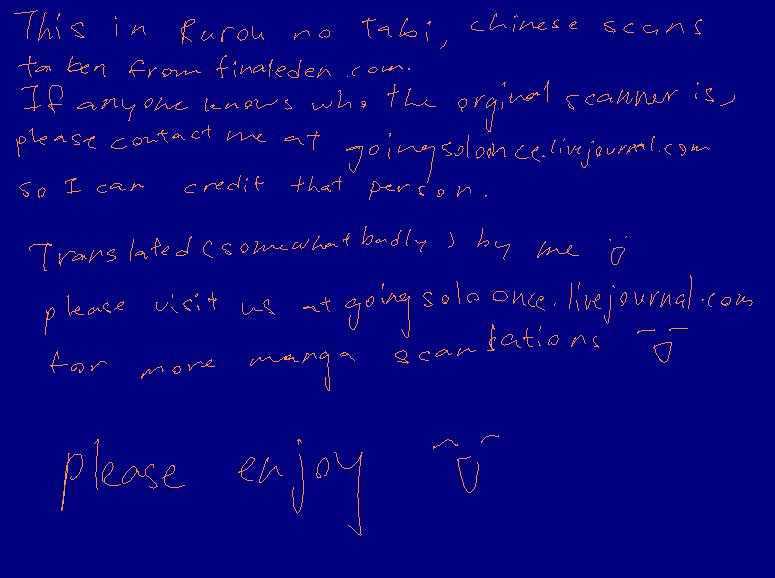 This in Rurou no Tabi, chinese scans
taken from finaleden.com.
If anyone knows who the orginal scanner is,
please contact me at goingsoloonce.livejournal.com
so I can credit that person.
Translated (somewhat badly) by me
please visit us at goingsoloonce.livejournal.com
for more manga scanslations
please enjoy